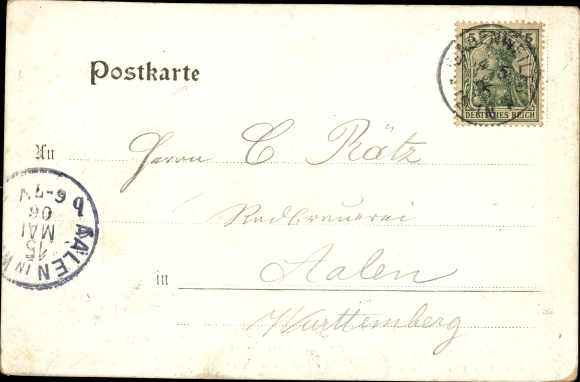 Postkarte
5
BADENWEILER
DEUTSCHES REICH
An Herrn C Rätz
in Aalen
Württemberg
AALEN IN W
15
MAI
06
6-7 N
b